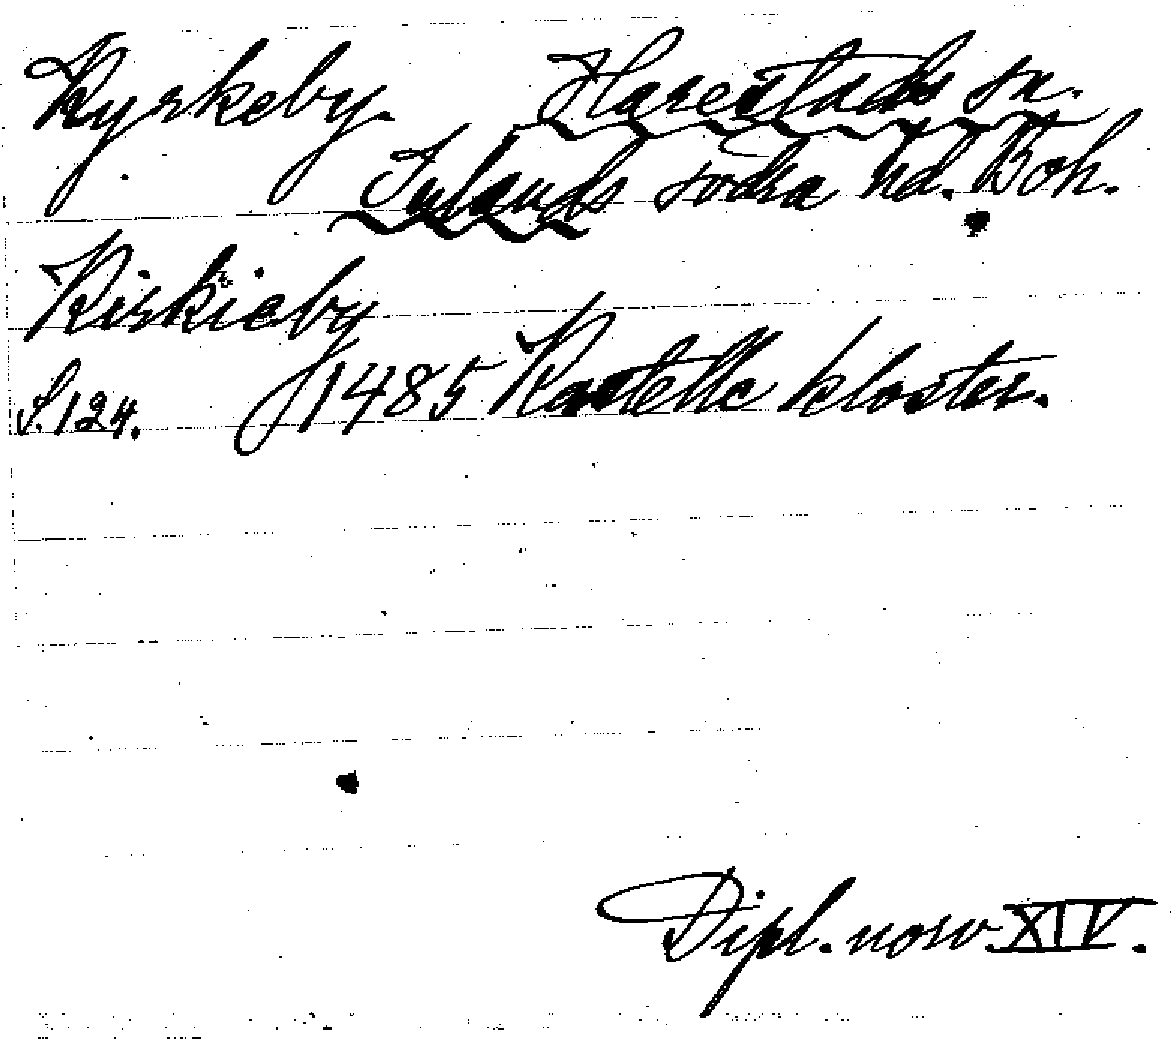 Kyrkeby. Harestads sn.
Inlands södra hd. Boh.
Kirkieby
S. 124. 1485 Kastelle kloster.
Dipl. norv. XIV.